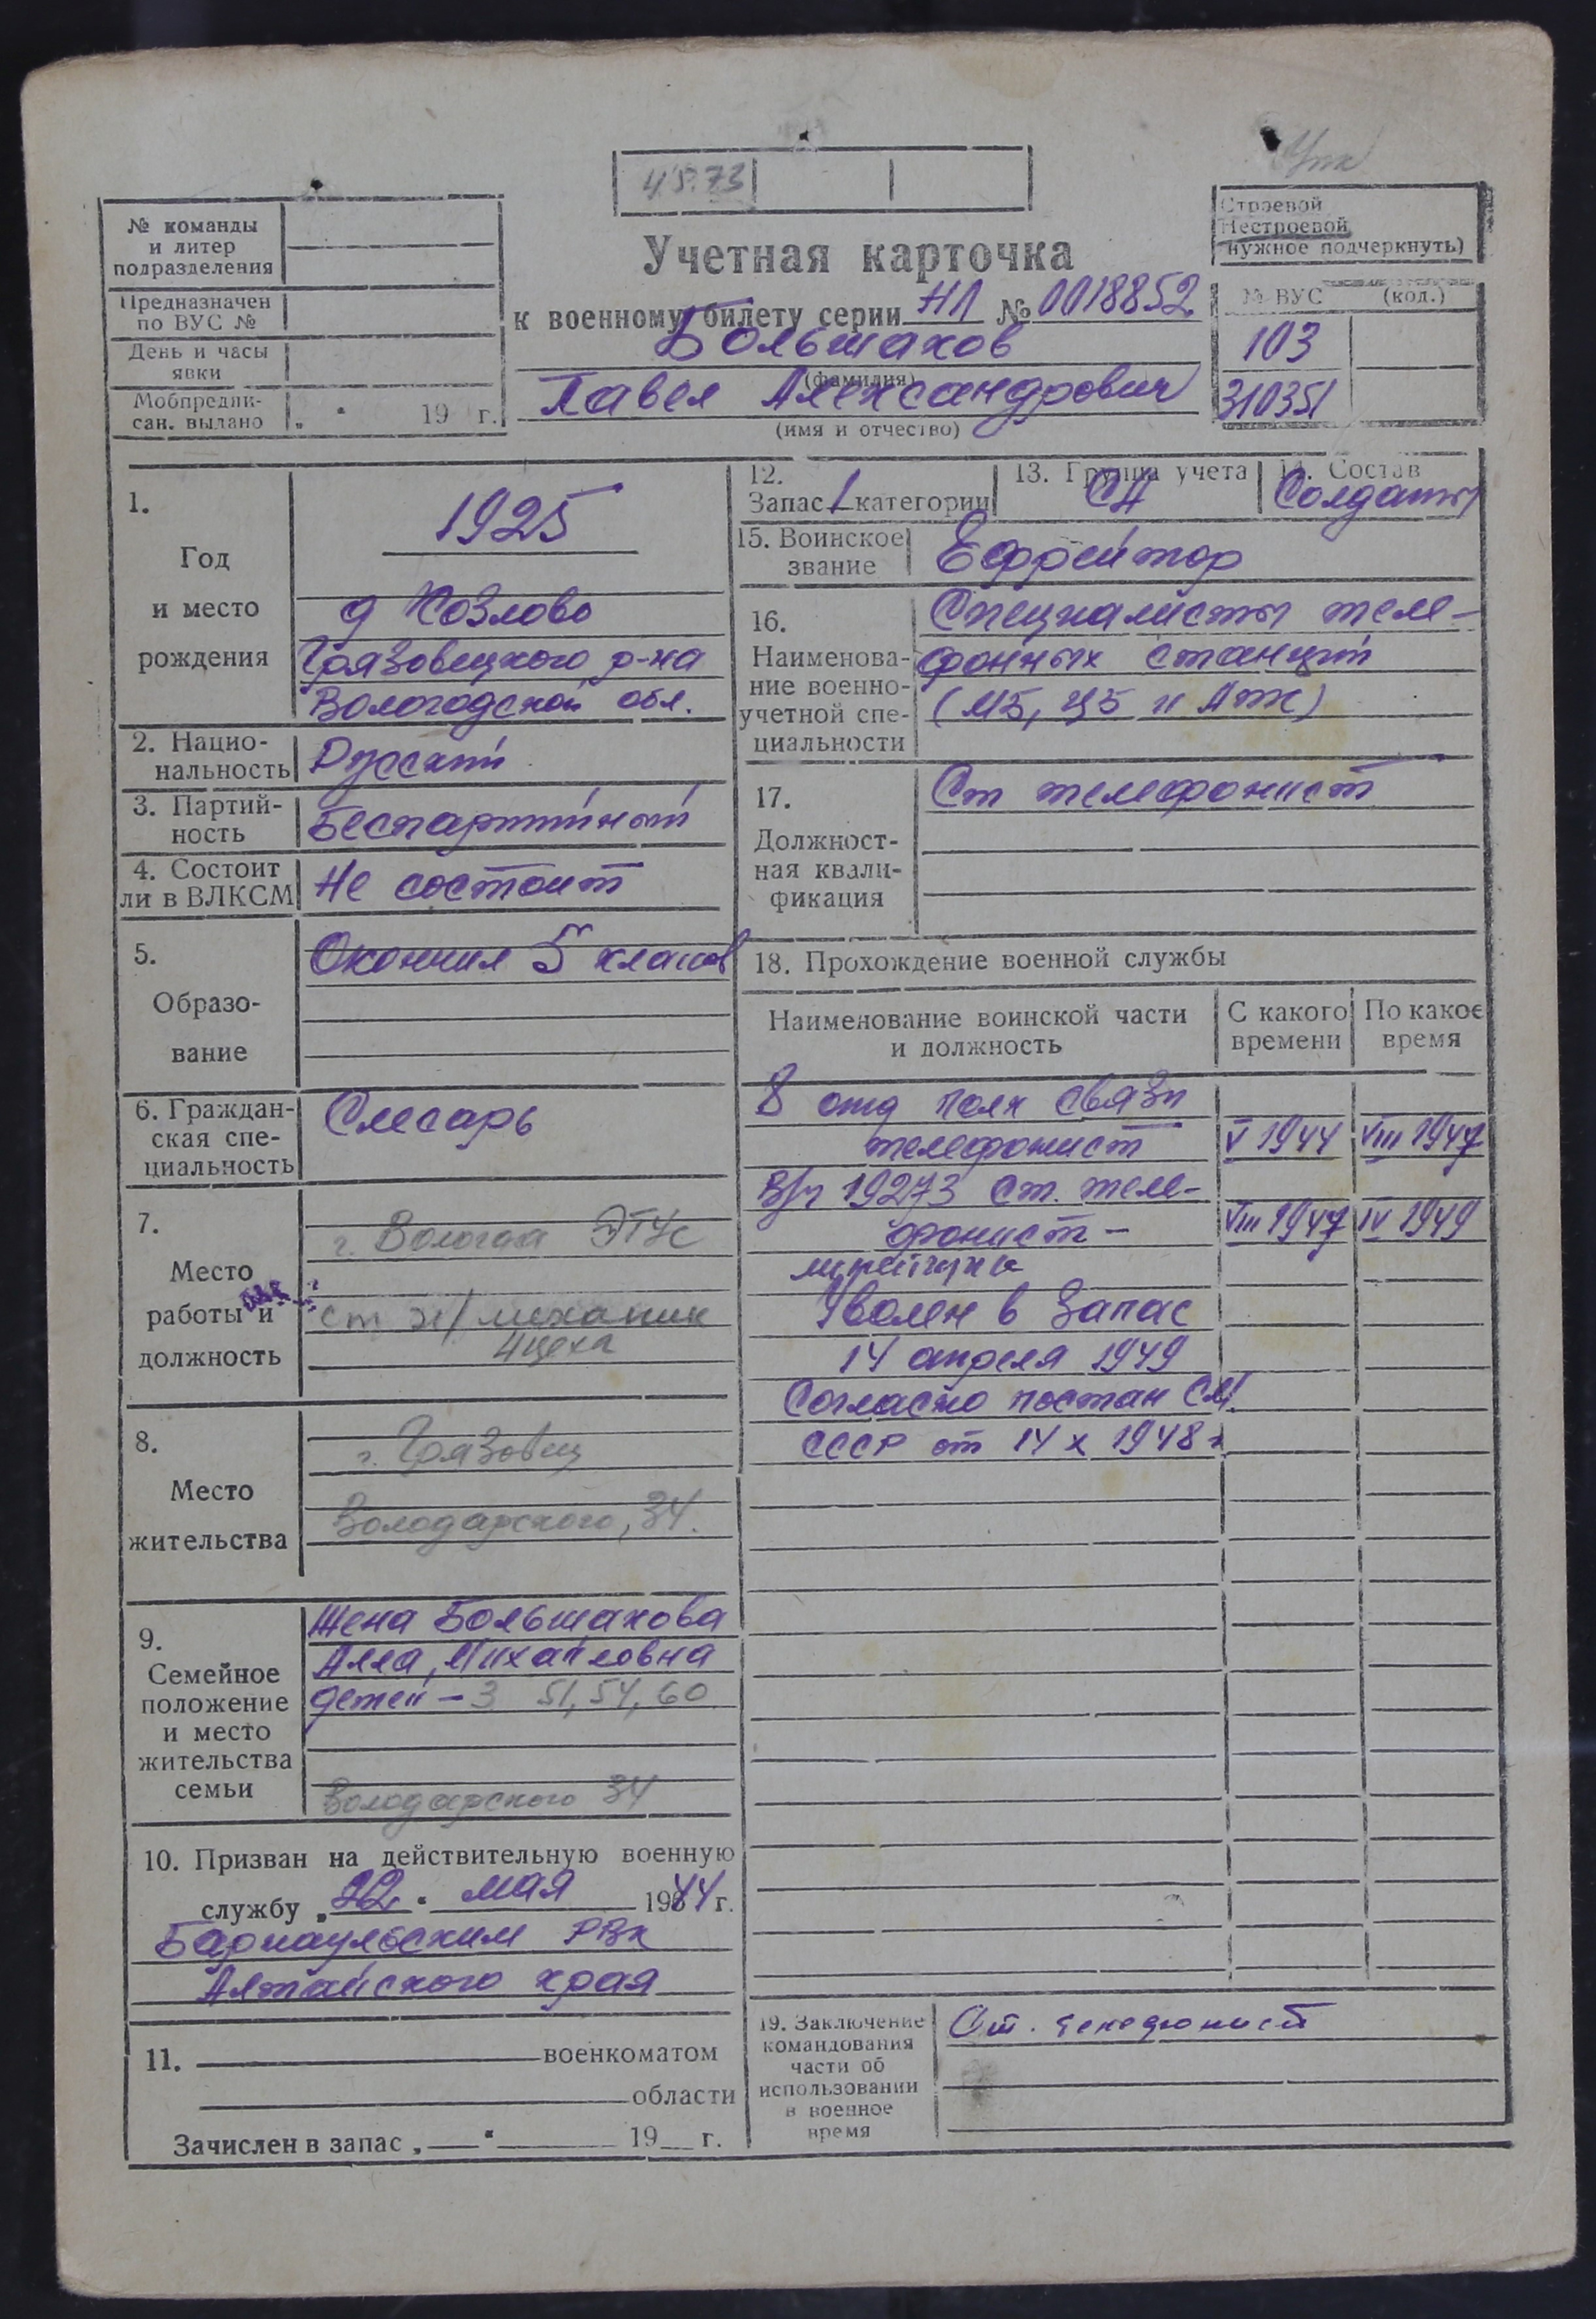 45.73
Строевой
Нестроевой
нужное подчеркнуть)
№ команды
и литер
подразделения
Предназначен
по ВУС №
День и часы
явки
Мобпредпи-
сан. выдано „ " 19 г.
Учетная карточка
к военному билету серии НЛ № 0018852
Большаков
(фамилия)
Павел Александрович
(имя и отчество)
№ ВУС (код.)
103
310351
1.
Год
и место
рождения
1925
д Козлово
Грязовецкого р-на
Вологодской обл.
2. Нацио-
нальность
Русский
3. Партий-
ность
Беспартийный
4. Состоит
ли в ВЛКСМ
Не состоит
5.
Образо-
вание
Окончил 5 классов
6. Граждан-
ская спе-
циальность
Слесарь
7.
Место
работы и
должность
г. Вологда ЭТУС
ст эл/механик
4 цеха
8.
Место
жительства
г. Грязовец
Володарского, 34.
9.
Семейное
положение
и место
жительства
семьи
Жена Большакова
Алла, Михайловна
детей – 3 51, 54, 60
Володарского 34
10. Призван на действительную военную
службу „22" мая 1944 г.
Барнаульским РВК
Алтайского края
11. военкоматом
области
Зачислен в запас „ " 19 г.
12.
Запас 1 категории
13. Группа учета
СА
14. Состав
Солдаты
15. Воинское
звание
Ефрейтор
16.
Наименова-
ние военно-
учетной спе-
циальности
Специалисты теле-
фонных станций
(МБ, ЦБ и АТС)
17.
Должност-
ная квали-
фикация
Ст телефонист
18. Прохождение военной службы
Наименование воинской части
и должность
С какого
времени
По какое
время
8 отд полк связи
телефонист V 1944 VIII 1947
В/ч 19273 Ст. теле-
фонист – VIII 1947 IV 1949
Уволен в запас
14 апреля 1949
Согласно постан СМ.
СССР от 14 X 1948 г
19. Заключение
командования
части об
использовании
в военное
время
Ст. телефонист